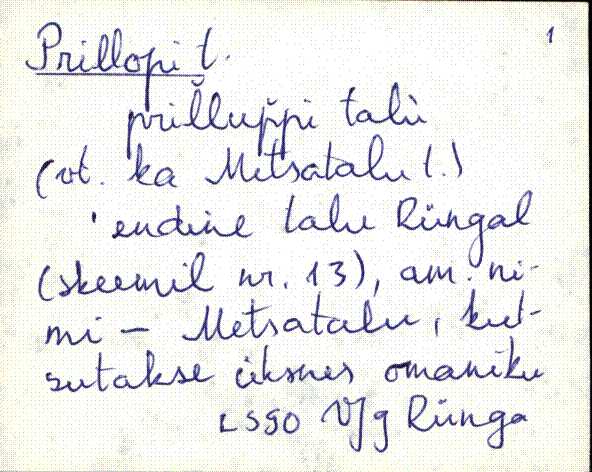 Prillopi t. 1
priľluṕpi talù
(vt. ka Metsatalu t.)
'endine talu Rüngal
(skeemil nr. 13), am. ni-
mi – Metsatalu, kut-
sutakse üksnes omaniku
Rünga